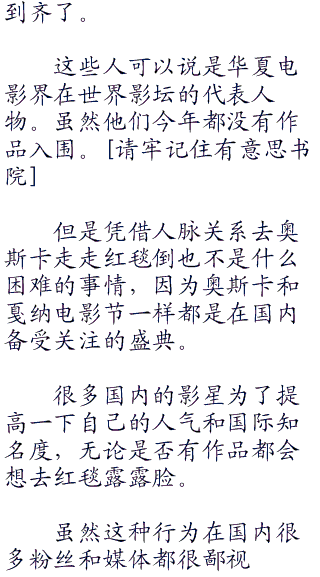 到齐了。
这些人可以说是华夏电
影界在世界影坛的代表人
物。虽然他们今年都没有作
品入围。[请牢记住有意思书
院]
但是凭借人脉关系去奥
斯卡走走红毯倒也不是什么
困难的事情，因为奥斯卡和
戛纳电影节一样都是在国内
备受关注的盛典。
很多国内的影星为了提
高一下自己的人气和国际知
名度，无论是否有作品都会
想去红毯露露脸。
虽然这种行为在国内很
多粉丝和媒体都很鄙视